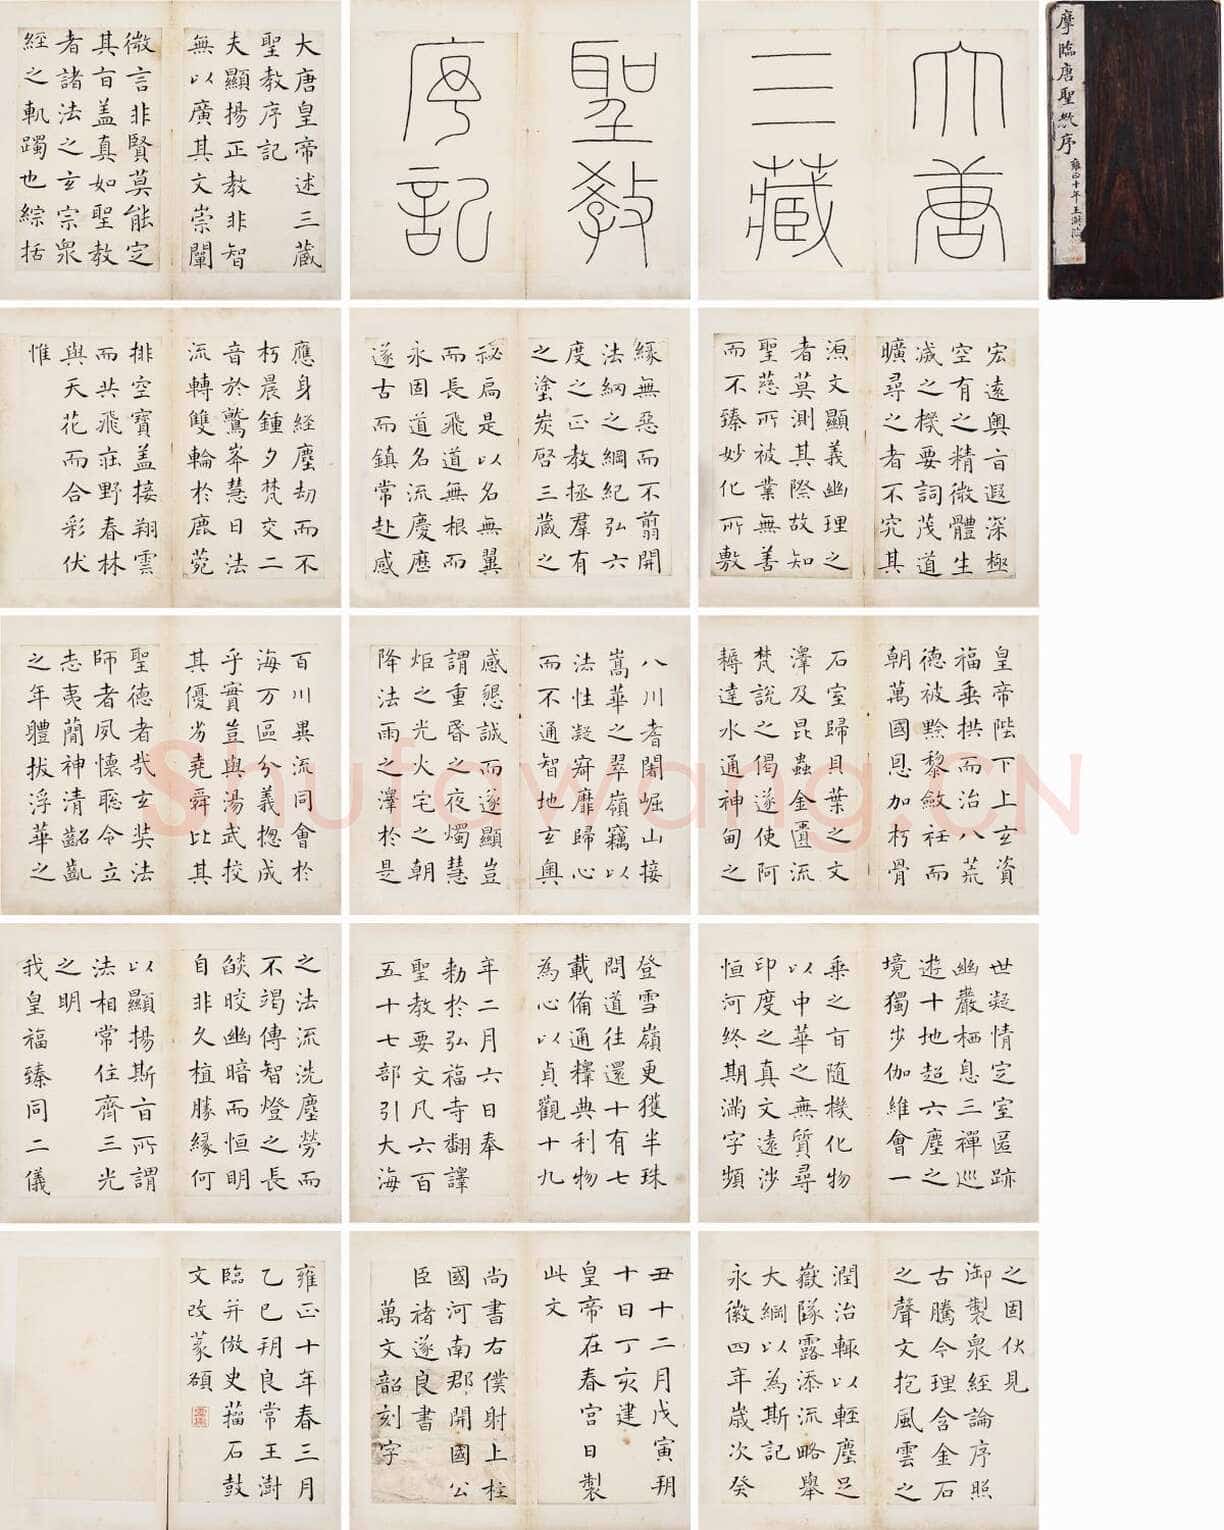 摩臨唐聖教序
雍正十年王澍臨
大唐
三藏
聖教
序記
大唐皇帝述三藏
聖教序記
夫顯揚正教非智
無以廣其文崇闡
微言非賢莫能定
其旨盖真如聖教
者諸法之玄宗衆
經之軌躅也綜括
宏遠奧旨遐深極
空有之精微體生
滅之機要詞茂道
曠尋之者不究其
源文顯義幽理之
者莫測其際故知
聖慈所被業無善
而不臻妙化所敷
緣無惡而不翦開
法網之綱紀弘六
度之正教拯羣有
之塗炭啓三藏之
祕扃是以名無翼
而長飛道無根而
永固道名流慶歷
遂古而鎮常赴感
應身經塵劫而不
朽晨鍾夕梵交二
音於鷲峯慧日法
流轉雙輪於鹿菀
排空寶盖接翔雲
而共飛莊野春林
與天花而合彩伏
惟
皇帝陛下上玄資
福垂拱而治八荒
德被黔黎斂衽而
朝萬國恩加朽骨
石室歸貝葉之文
澤及昆蟲金匱流
梵說之偈遂使阿
耨達水通神甸之
八川耆闍崛山接
嵩華之翠嶺竊以
法性凝寂靡歸心
而不通智地玄奧
感懇誠而遂顯豈
謂重昏之夜燭慧
炬之光火宅之朝
降法雨之澤於是
百川異流同會於
海万區分義揔成
乎實豈與湯武校
其優劣堯舜比其
聖德者哉玄奘法
師者夙懷聦令立
志夷蕳神清齠齓
之年體拔浮華之
世凝情定室匿跡
幽巖栖息三禪巡
遊十地超六塵之
境獨步伽維會一
乘之旨隨機化物
以中華之無質尋
印度之真文遠涉
恒河終期滿字頻
登雪嶺更獲半珠
問道往還十有七
載備通釋典利物
為心以貞觀十九
年二月六日奉
勑於弘福寺翻譯
聖教要文凡六百
五十七部引大海
之法流洗塵勞而
不竭傳智燈之長
焰皎幽暗而恒明
自非久植勝緣何
以顯揚斯旨所謂
法相常住齊三光
之明
我皇福臻同二儀
之固伏見
御製衆經論序照
古騰今理含金石
之聲文抱風雲之
潤治輒以輕塵足
嶽墜露添流略舉
大綱以為斯記
永徽四年歲次癸
丑十二月戊寅朔
十日丁亥建
皇帝在春宮日製
此文
尚書右僕射上柱
國河南郡開國公
臣褚遂良書
萬文韶刻字
雍正十年春三月
乙巳朔良常王澍
臨并倣史籀石鼓
文改篆額
Shufawang.CN